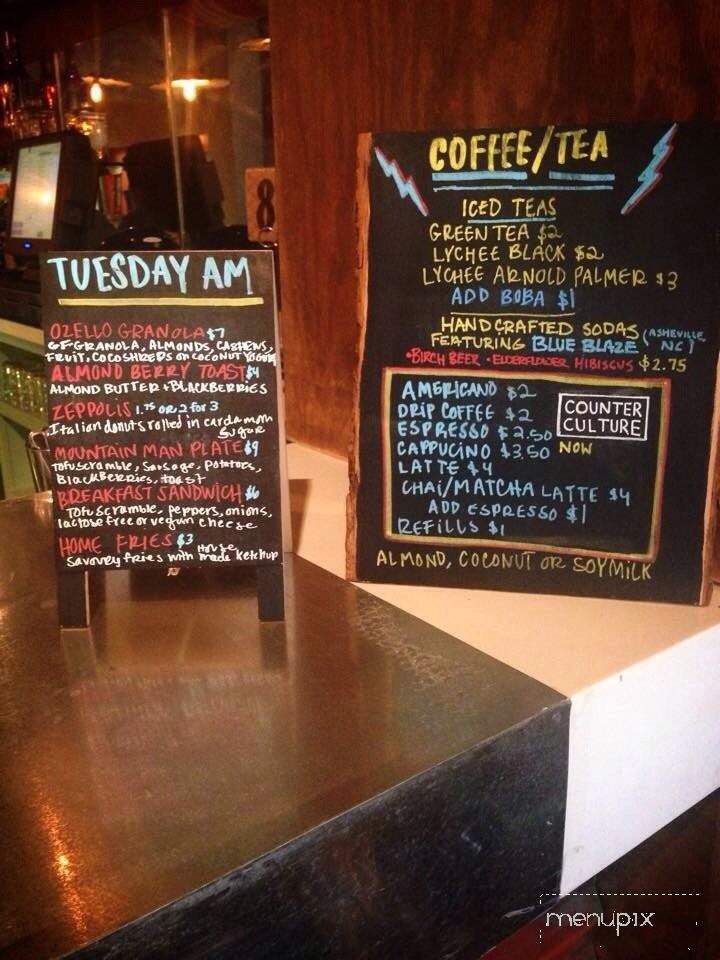 TUESDAY AM
OZELLO GRANOLA $7
GF-GRANOLA, ALMONDS, CASHEWS,
FRUIT, COCOSHREDS OR COCONUT YOGURT
ALMOND BERRY TOAST $4
ALMOND BUTTER + BLACKBERRIES
ZEPPOLIS 1.75 OR 2 for 3
Italian donuts rolled in cardamom
sugar
MOUNTAIN MAN PLATE $9
Tofu scramble, Sausage, Potatoes,
BlackBERRIES, toast
BREAKFAST SANDWICH $6
Tofu scramble, peppers, onions,
lactose free or vegan cheese
HOME FRIES $3
savorey fries with House made ketchup
8
COFFEE/TEA
ICED TEAS
GREEN TEA $2
LYCHEE BLACK $2
LYCHEE ARNOLD PALMER $3
ADD BOBA $1
HANDCRAFTED SODAS (ASHEVILLE,
FEATURING BLUE BLAZE NC)
•BIRCH BEER •ELDERFLOWER HIBISCUS $2.75
AMERICANO $2
DRIP COFFEE $2
ESPRESSO $2.50
CAPPUCINO $3.50
LATTE $4
CHAI/MATCHA LATTE $4
ADD ESPRESSO $1
REFILLS $1
COUNTER
CULTURE
NOW
ALMOND, COCONUT OR SOYMILK
menupix